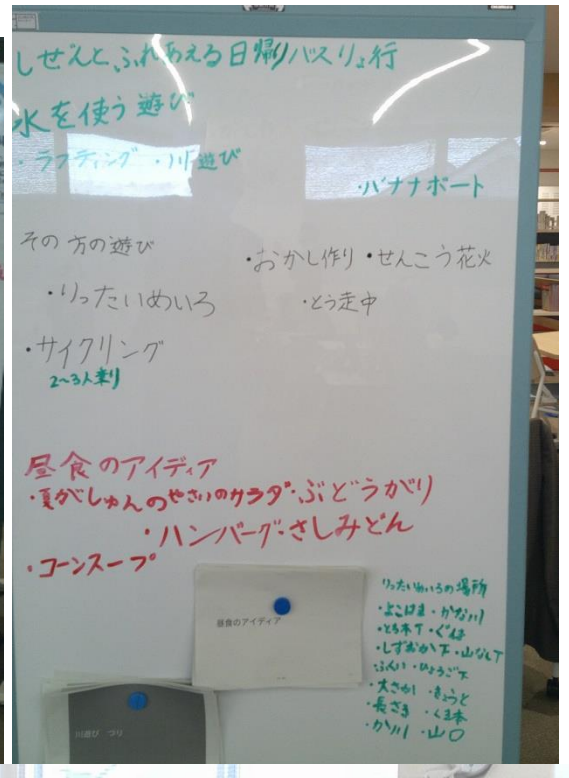 しぜんと、ふれあえる日帰りバスりょ行
水を使う遊び
・ラフティング ・川遊び
・バナナボート
その方の遊び
・おかし作り ・せんこう花火
・りったいめいろ
・とう走中
・サイクリング
2〜3人乗り
昼食のアイディア
・夏がしゅんのやさいのサラダ・ぶどうがり
・ハンバーグ・さしみどん
・コーンスープ
昼食のアイディア
川遊び つり
りったいめいろの場所
・よこはま・かな川
・とち木T・ぐんま
・しずおか下・山なし下
・ふくい・ひょうご下
・大さか・きょうと
・長さき・くま本
・か川・山口